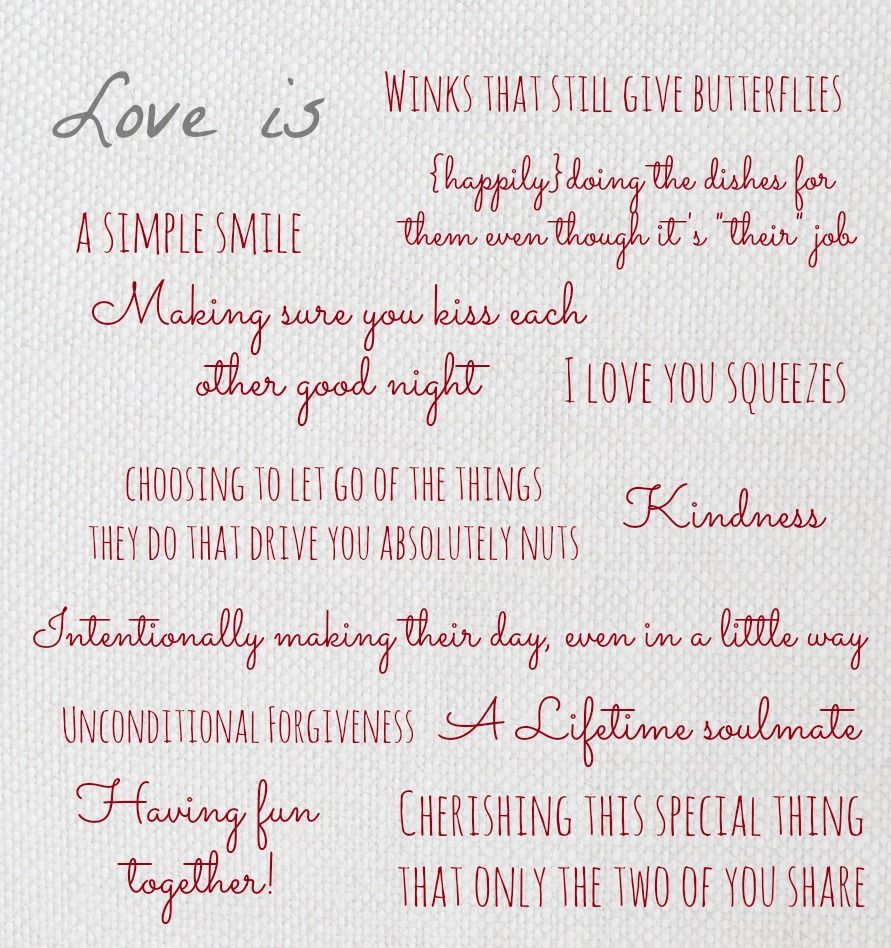 Love is
Winks that still give butterflies
{happily} doing the dishes for
them even though it's "their" job
A SIMPLE SMILE
Making sure you kiss each
other good night
I LOVE YOU SQUEEZES
CHOOSING TO LET GO OF THE THINGS
THEY DO THAT DRIVE YOU ABSOLUTELY NUTS
Kindness
Intentionally making their day, even in a little way
Unconditional Forgiveness
A Lifetime soulmate
Having fun
together!
Cherishing this special thing
that only the two of you share